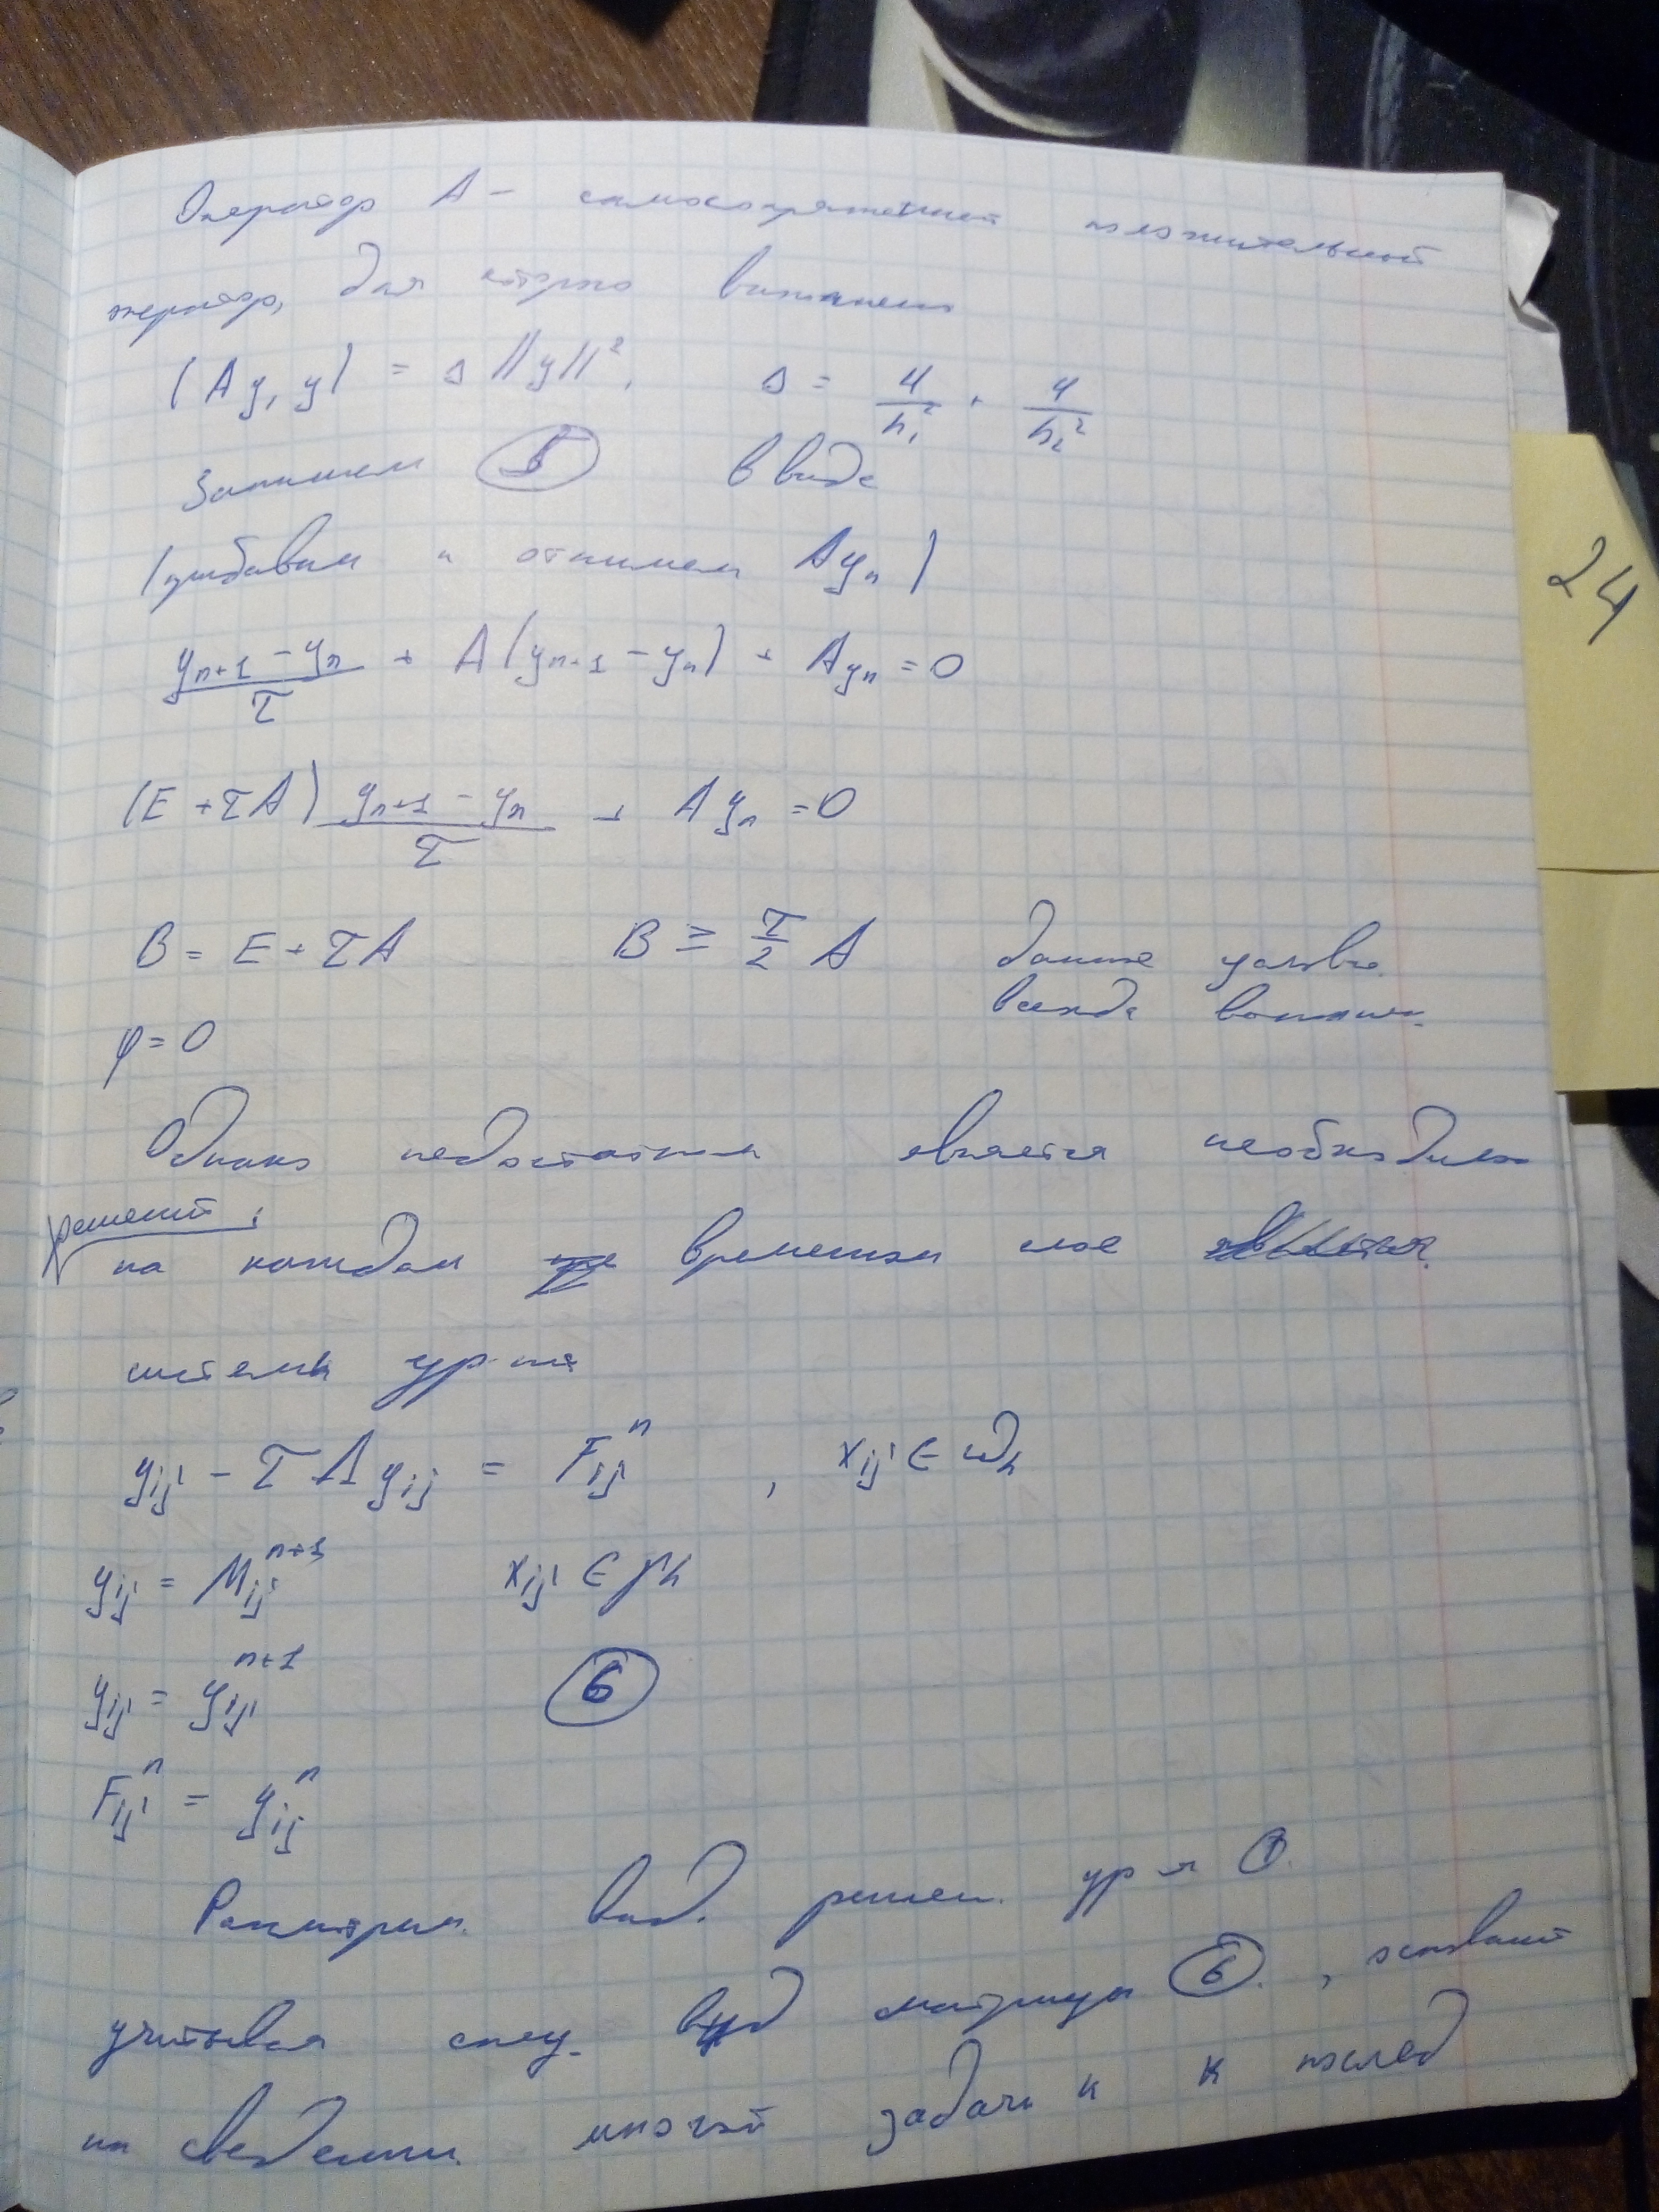 Оператор A – самосопряженный положительный
оператор, для которго выполнено
(Ay, y) = Δ ||y||², Δ = 4/h₁² + 4/h₂²
Запишем (5) в виде
(прибавим и отнимем Ayₙ)
(yₙ₊₁ – yₙ)/τ + A(yₙ₊₁ – yₙ) + Ayₙ = 0
(E + τA) (yₙ₊₁ – yₙ)/τ + Ayₙ = 0
B = E + τA B ≥ τ/2 A данное условие
всегда выполнен.
φ = 0
Однако недостатком является необходимо
решений
на каждом временном слое
системы ур-ний
yᵢⱼ – τΛyᵢⱼ = Fᵢⱼⁿ , xᵢⱼ ∈ ωₕ
yᵢⱼ = Mᵢⱼⁿ⁺¹ xᵢⱼ ∈ γₕ
yᵢⱼ = yᵢⱼⁿ⁺¹ (6)
Fᵢⱼⁿ = yᵢⱼⁿ
Рассмотрим. вид. решен. ур-я (1).
учитывая спец. вид матрицы (6). , основаный
на сведении. многой задачи к к послед
24